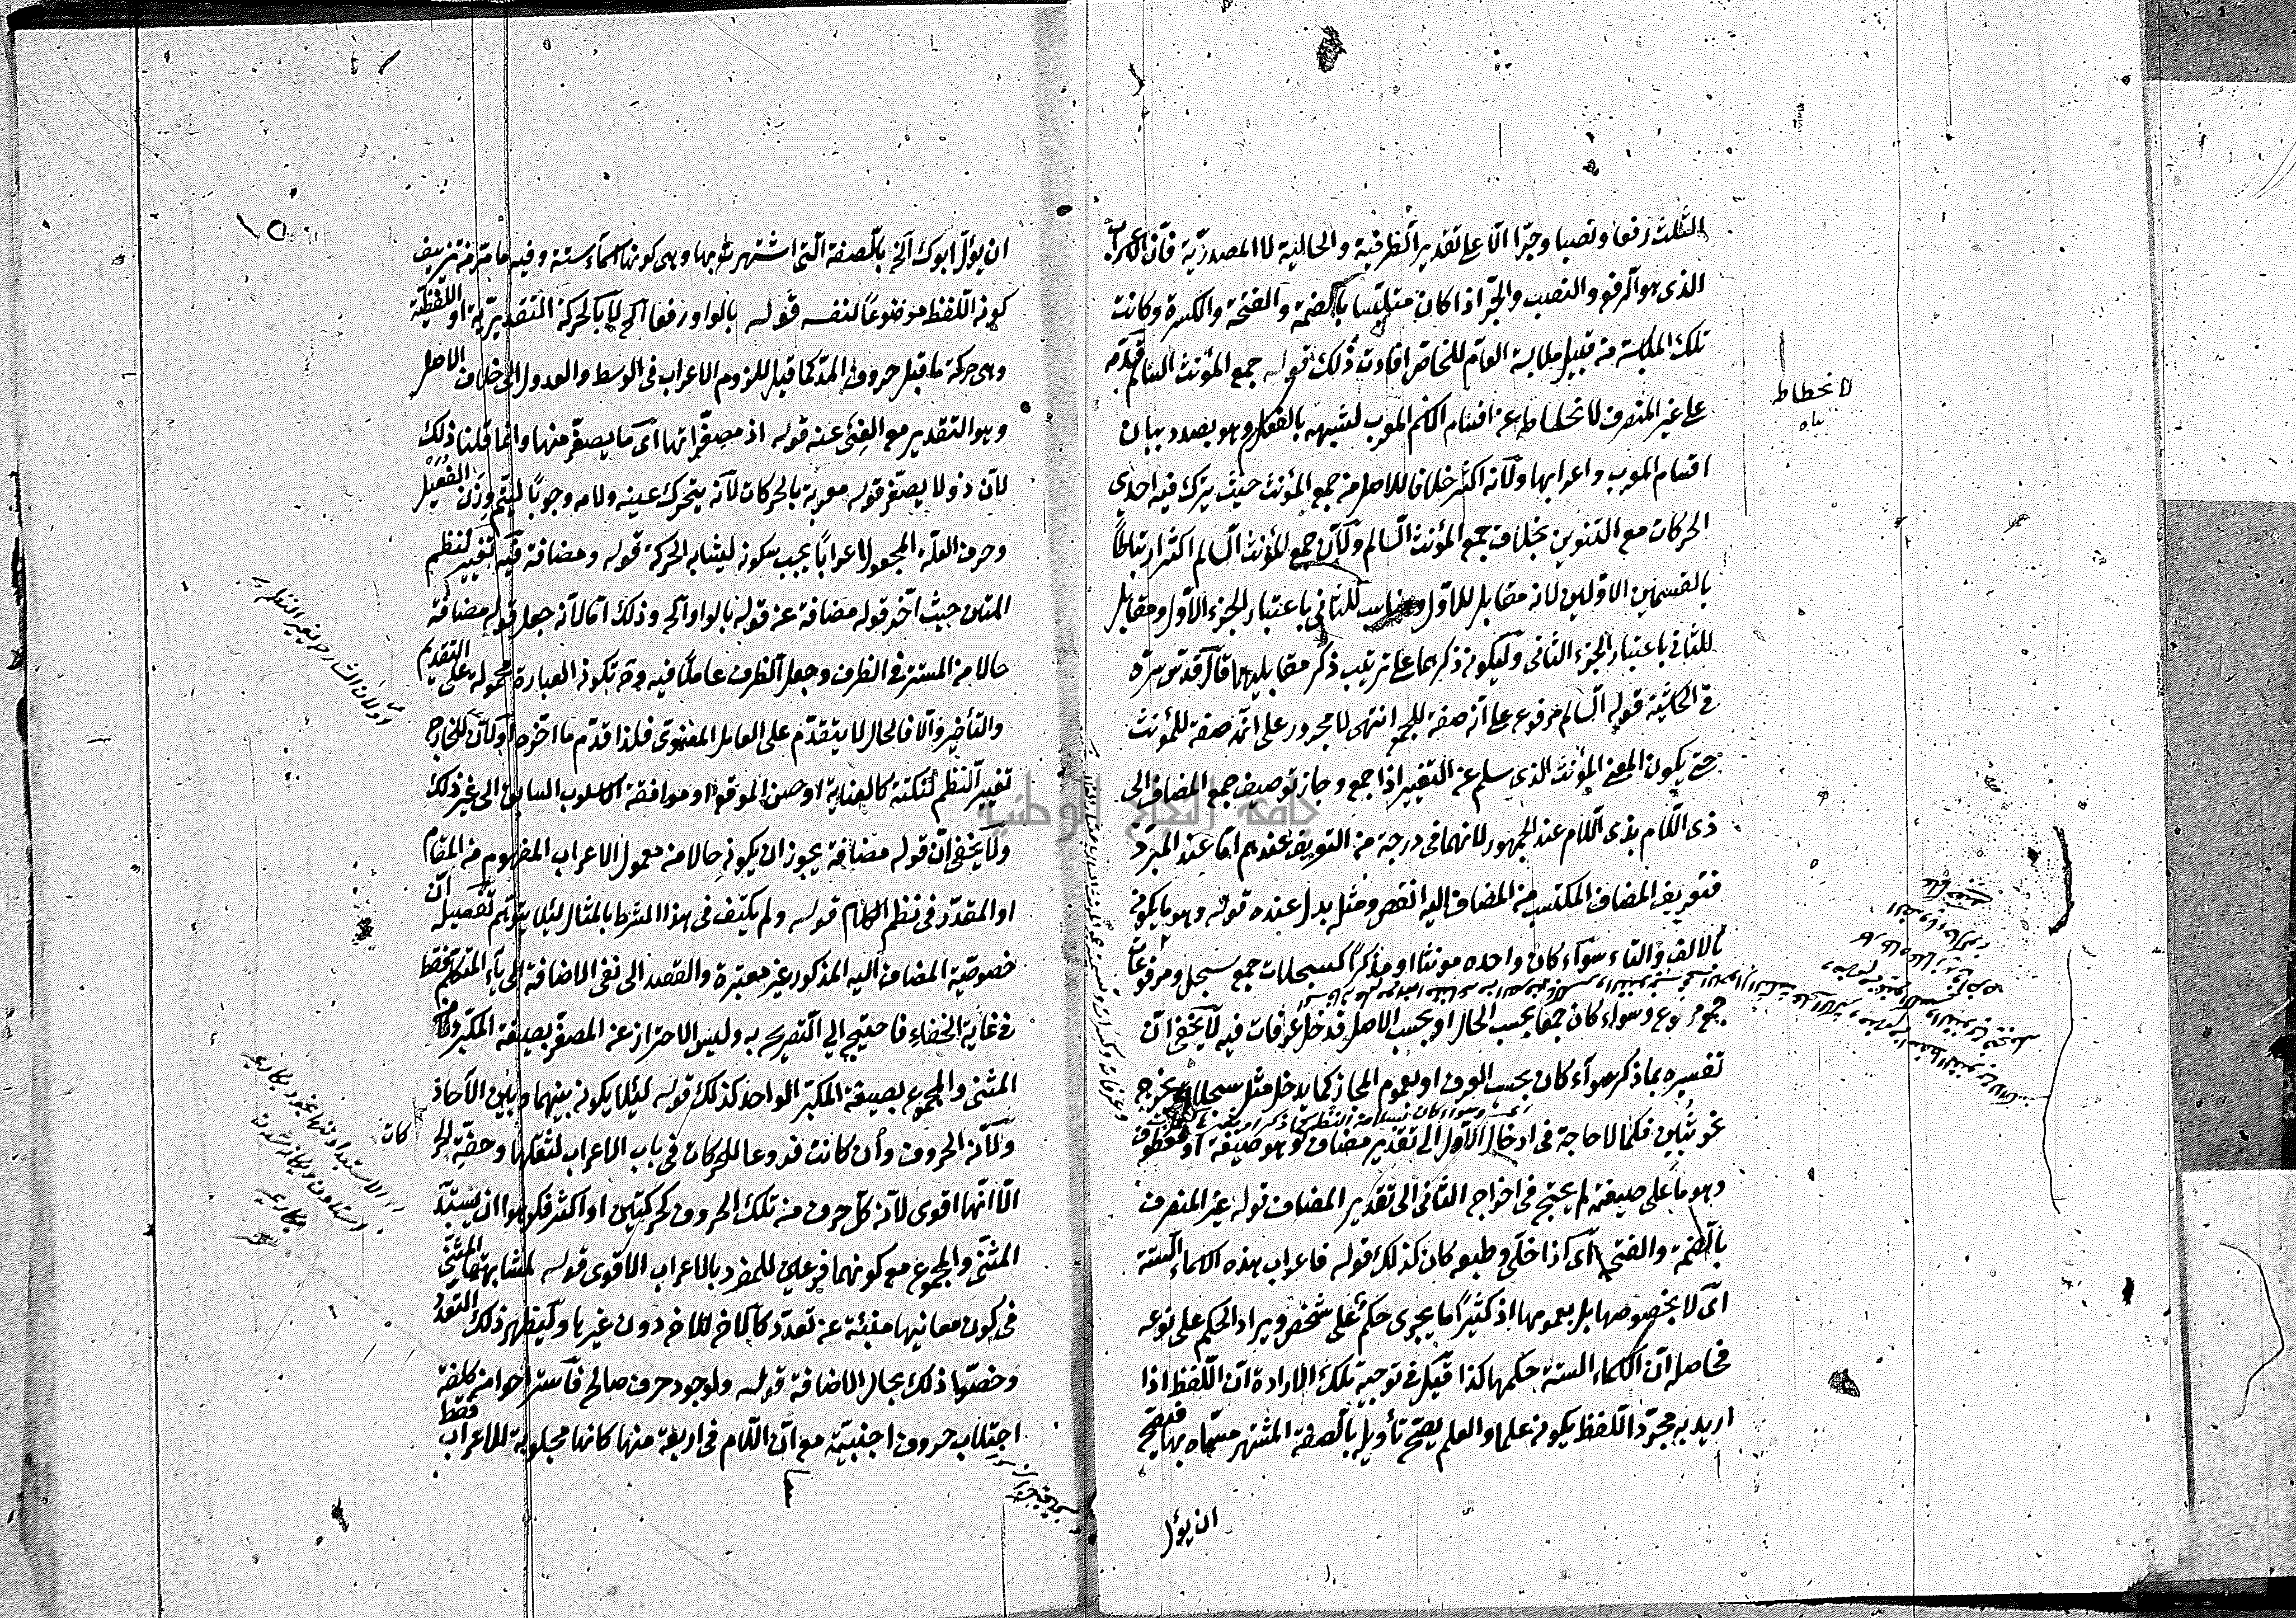 الثلث رفعا ونصبا وجرّا الّا على تقدير الظرفية والحالية لا المصدريّة فانّ الاعراب
الذى هو الرفع والنصب والجرّ اذا كان متلبّسا بالضمة والفتحة والكسرة وكانت
تلك الملابسة من قبيل ملابسة العامّ للخاصّ افادت ذلك قوله جمع المؤنث السالم قدّمه
على غير المنصرف لانحطاطه عن اقسام الاسم المعرب لشبهه بالفعل وهو بصدد بيان
اقسام المعرب واعرابها ولانّه اكثر خلافا للاصل من جمع المؤنث حيث يترك فيه احدى
الحركات مع التنوين بخلاف جمع المؤنث السالم ولانّ جمع المؤنث السالم اكثر ارتباطًا
بالقسمين الاوّلين لانه مقابل للاوّل ومناسب للثانى باعتبار الجزء الاوّل ومقابل
للثانى باعتبار الجزء الثانى وليكون ذكرهما على ترتيب ذكر مقابليهما قال قدّس سرّه
فى الحاشية قوله السالم مرفوع على انّه صفة للجمع انتهى لا مجرور على انّه صفة للمؤنث
حتى يكون المعنى المؤنث الذى سلم عن التغيير اذا جمع وجاز توصيف جمع المضاف الى
ذى اللام بذى اللام عند الجمهور لانهما فى درجة من التعريف عندهم امّا عند المبرّد
فتعريف المضاف المكتسب من المضاف اليه انقص ومثله بدل عنده قوله وهو ما يكون
بالالف والتاء سوآء كان واحده مونثا او مذكرًا كسبحلات جمع سبحل ومرفوعات
جمع مرفوع وسواء كان جمعا بحسب الحال او بحسب الاصل فدخل عرفات فيه لا يخفى انّ
تفسيره بما ذكر سوآء كان بحسب العرف او بعموم المجاز كما يدخل مثل سبحلات يخرج
نحو ثبين فكما لا حاجة فى ادخال الاوّل الى تقدير مضاف وهو صيغة او معطوف
وهو ما على صيغته لم يحتج فى اخراج الثانى الى تقدير المضاف قوله غير المنصرف
بالضمة والفتحة اى كذا خلّى وطبعه كان كذلك قوله فاعراب هذه الاسماء الستة
اى لا بخصوصها بل بعمومها اذ كثيرًا ما يجرى حكم على شخص ويراد الحكم على نوعه
فحاصله انّ الاسماء الستة حكمها كذا قيل فى توجيه تلك الارادة انّ اللفظ اذا
اريد به مجرّد اللفظ يكون علما والعلم يصحّ تأويله بالصفة المشتهر مسمّاه بها فيصحّ
ان يؤل
لانحطاط
ان يؤل ابوك الخ بالصفة التى اشتهرت بها وهى كونها اسماء ستة وفيه ما مرّ من تزييف
كون اللفظ موضوعًا لنفسه قوله بالواو رفعا الخ لا بالحركة التقديرية او اللفظيّة
وهى حركة ما قبل حروف المدّ كما قيل للزوم الاعراب فى الوسط والعدول الى خلاف الاصل
وهو التقدير مع الغنى عنه قوله اذ مصغّراتها اى ما يصغّر منها وانما قلنا ذلك
لانّ ذو لا يصغّر قوله معربة بالحركات لانه يتحرك عينه ولامه وجوبًا ليتم وزن الفعيل
وحرف العلّة المجعول اعرابًا يجب سكونه ليشابه الحركة قوله ومضافة فيه تغيير لنظم
المتن حيث اخّر قوله مضافة عن قوله بالواو الخ وذلك امّا لانّه جعل قوله مضافة
حالا من المستتر فى الظرف وجعل الظرف عاملًا فيه وح تكون العبارة محمولة على التقديم
والتأخير والّا فالحال لا يتقدّم على العامل المعنوى فلذا قدّم ما اخّره او لانّ للشارح
تغيير النظم لنكتة كالعناية او حسن الموقع او موافقة الاسلوب السابق الى غير ذلك
ولا يخفى انّ قوله مضافة يجوز ان يكون حالا من معمول الاعراب المفهوم من المقام
او المقدّر فى نظم الكلام قوله ولم يكتف فى هذا الشرط بالمثال لئلا يتوهّم تفصيله انّ
خصوصيّة المضاف اليه المذكور غير معتبرة والقصد الى نفى الاضافة الى ياء المتكلم فقط
فى غاية الخفاء فاحتيج الى التصريح به وليس الاحتراز عن المصغّر بصيغة المكبّر وعن
المثنى والمجموع بصيغة المكبّر الواحد كذلك قوله لئلا يكون بينهما وبين الآحاد
ولانّ الحروف وان كانت فروعا للحركات فى باب الاعراب لثقلها وخفّة الحركات
الّا انّها اقوى لانّ كل حرف من تلك الحروف كحركتين او اكثر فكرهوا ان يستبدّ
المثنّى والمجموع مع كونهما فرعين للمفرد بالاعراب الاقوى قوله لمشابهتها المثنّى
فى كون معانيها منبئة عن تعدّد كالاخ للاخ دون غيرها وليظهر ذلك التعدّد
وخصّتها ذلك بحال الاضافة قوله ولوجود حرف صالح فاستراحوا من كلفة
اجتلاب حروف اجنبيّة مع انّ اللام فى اربعة منها كانها مجلوبة للاعراب فقط
جامعة النجاح الوطنية